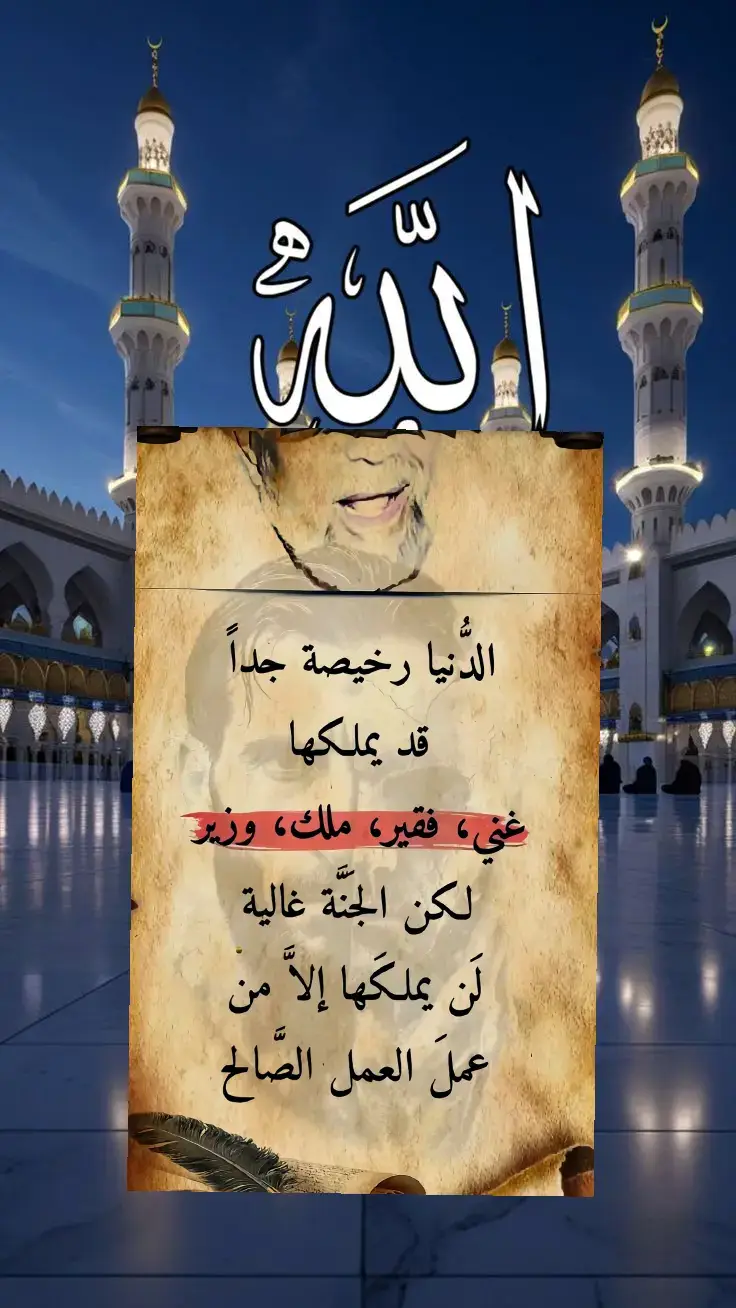 الله
الدُّنيا رخيصة جداً
قد يملكها
غني، فقير، ملك، وزير
لكن الجَنَّة غالية
لَن يملكَها إلاَّ من
عملَ العمل الصَّالح